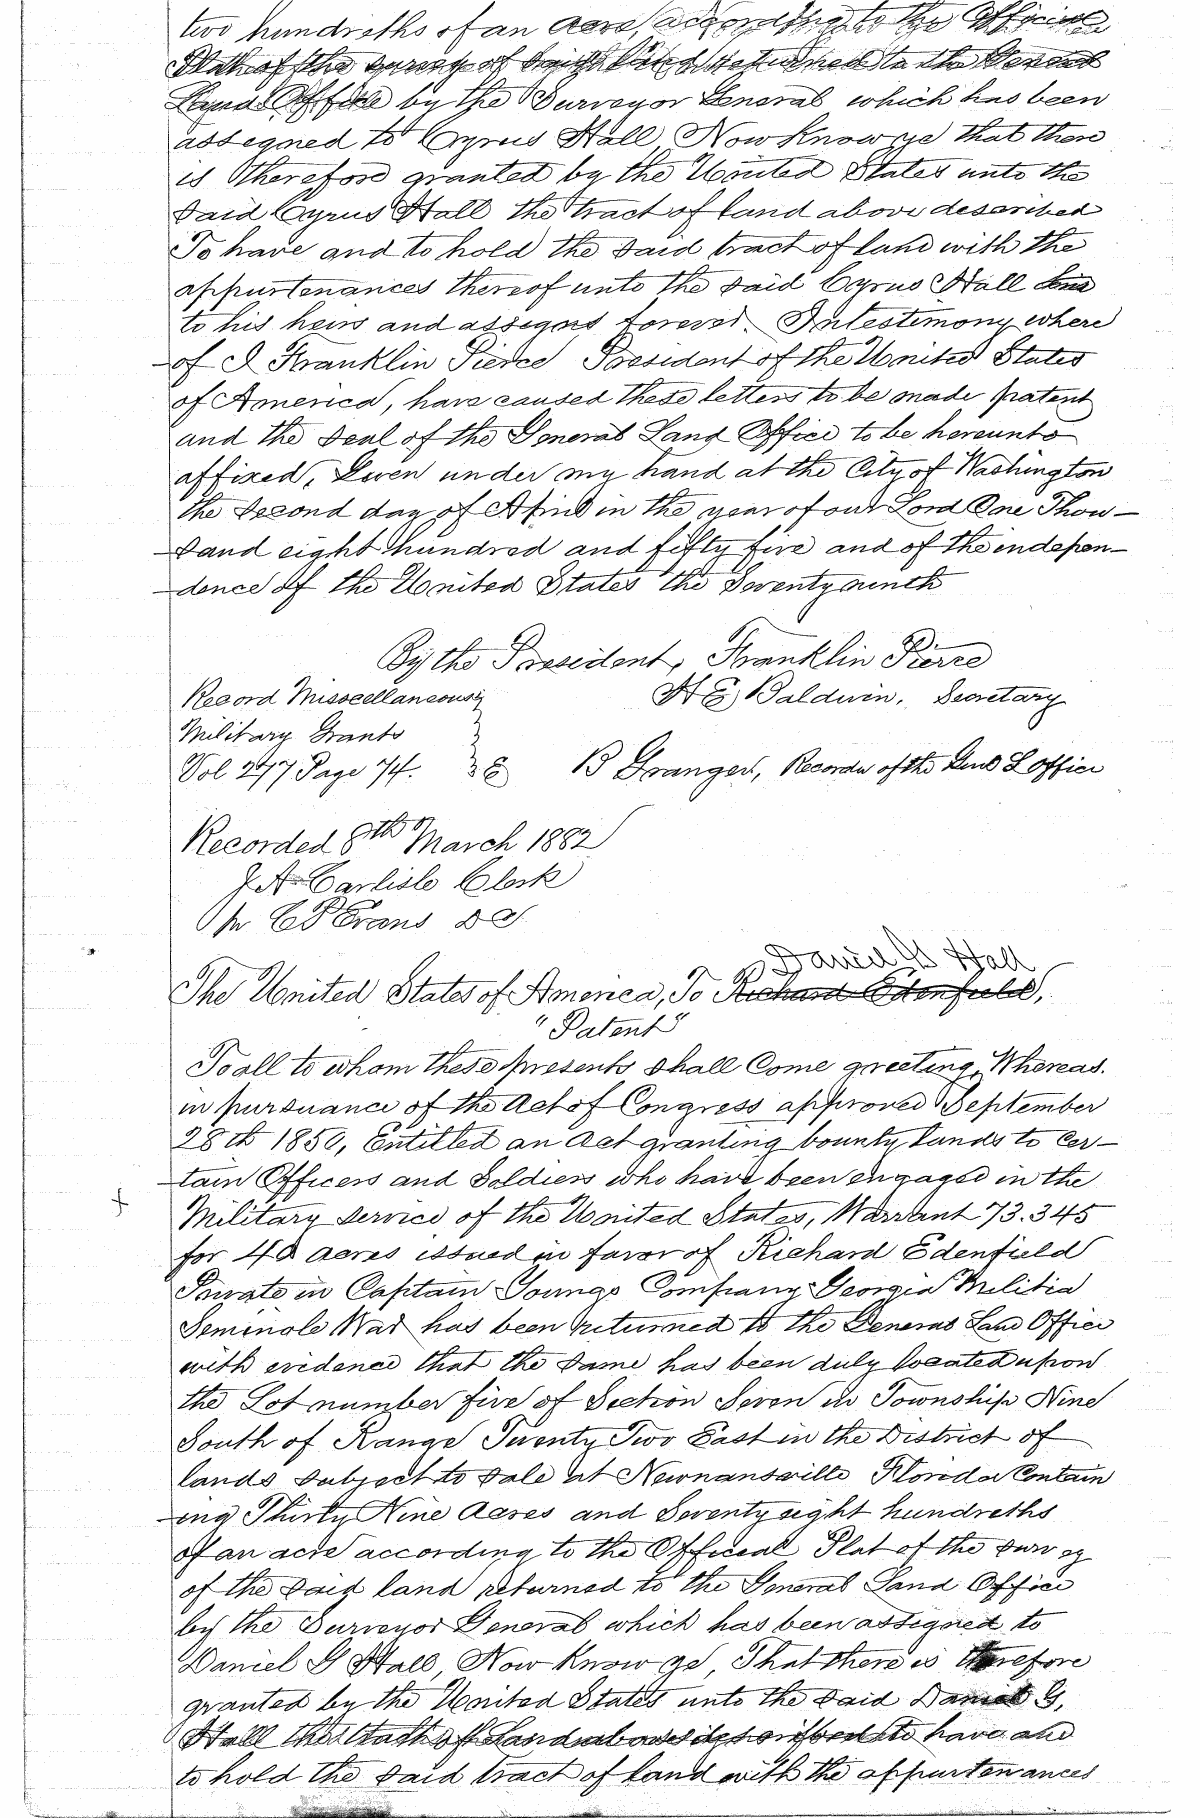 two hundreths of an acre, according to the Official
Plat of the survey of said land returned to the General
Land Office by the Surveyor General which has been
assegned to Cyrus Hall, Now Know ye that there
is therefore granted by the United States unto the
said Cyrus Hall the tract of land above described
To have and to hold the said tract of land with the
appurtenances thereof unto the said Cyrus Hall and
to his heirs and assigns forever. In testimony where
of I Franklin Pierce President of the United States
of America, have caused these letters to be made patent
and the seal of the General Land Office to be hereunto
affixed, Given under my hand at the City of Washington
the second day of April in the year of our Lord One Thou-
sand eight hundred and fifty five and of the indepen-
dence of the United States the Seventy ninth
By the President, Franklin Pierce
Record Misscellaneous
H E Baldwin, Secretary
Military Grants
Vol 247 Page 74.
B Granger, Recorder of the Genl L Office
Recorded 8th March 1882
J A Carlisle Clerk
pr C P Evans D C
Daniel G Hall
The United States of America, To Richard Edenfield,
"Patent"
To all to whom these presents shall Come greeting, Whereas.
in pursuance of the Act of Congress approved September
28th 1850, Entitled an Act granting bounty lands to Cer-
tain Officers and Soldiers who have been engaged in the
Military service of the United States, Warrant 73.345
for 40 acres issued in favor of Richard Edenfield
Private in Captain Youngs Company Georgia Militia
Seminole War has been returned to the General Land Office
with evidence that the same has been duly located upon
the Lot number five of Section Seven in Township Nine
South of Range Twenty Two East in the District of
lands subject to sale at Newnansville Florida Contain
ing Thirty Nine Acres and Seventy eight hundreths
of an acre according to the Official Plat of the survey
of the said land returned to the General Land Office
by the Surveyor General which has been assigned to
Daniel G Hall, Now Know ye, That there is therefore
granted by the United States unto the said Daniel G,
Hall the tract of Land above described to have and
to hold the said tract of land with the appurtenances